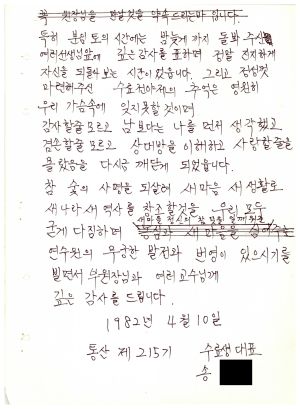 꼭 옛정님을 만날것을 약속드리는바 입니다.
특히 분임 토의 시간에는 밤늦게 까지 돌봐 주신
여러선생님앞에 깊은감사를 표하며 정말 진지하게
자신을 되돌아보는 시간이 있습니다. 그리고 정성껏
마련해주신 수료전야제의 추억은 영원히
우리 가슴속에 잊지못할 것이며
감사할줄 모르고 남보다는 나를 먼저 생각했고
겸손할줄 모르고 상대방을 이해하고 사랑할줄을
몰랐음을 다시금 깨닫게 되었습니다.
참 삶의 사명을 되살려 새마음 새생활로
새나라 새역사를 창조할것을 우리 모두
새마을 정신의 참 뜻을 함께 위해
굳게 다짐하며 심어주는
연수원의 무궁한 발전과 번영이 있으시기를
빌면서 부원장님과 여러교수님께
깊은 감사를 드립니다.
1982년 4월 10일
통산 제 215기 수료생 대표
송